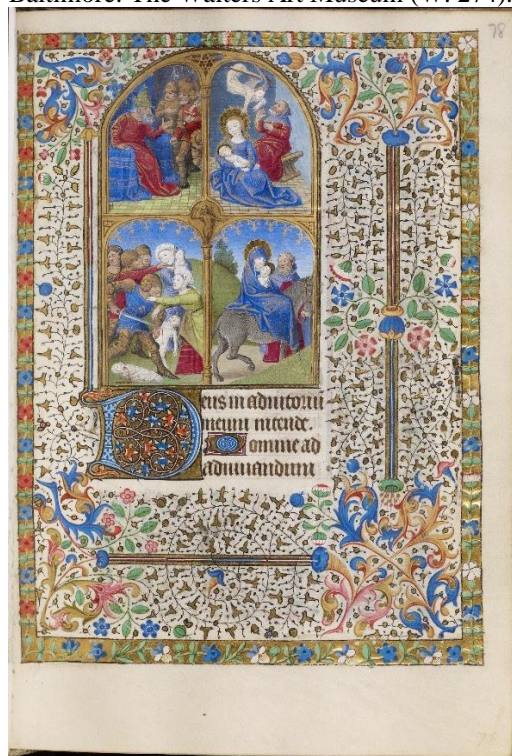 Baltimore. The Walters Art Museum (W. 274).
78
Deus in adiutoriu
meum intende.
Domine ad
adiuuandum